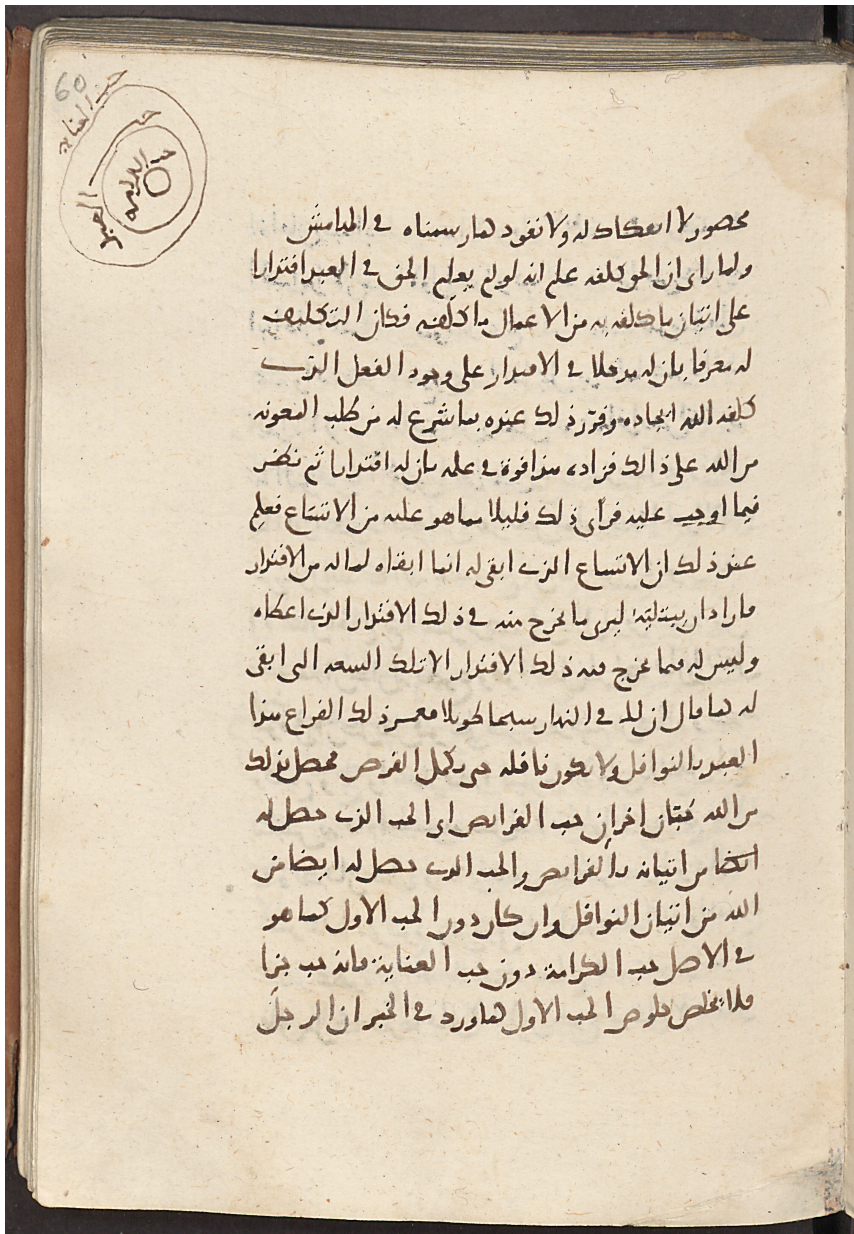 60
حب العناية
حب
الكرامة
محصور لا انفكاك له ولا نفوذ كما رسمناه في الهامش
ولما راى ان الحق كلفه علم انه لو لم يعلم الحق في العبد اقتدارا
على اتيان ما كلفه به من الاعمال ما كلّفه فكان التكليف
له معرفا بان له مدخلا في الاقتدار على وجود الفعل الذي
كلفه الله ايجاده وقرّر ذلك عنده بما شرع له من طلب المعونة
من الله على ذالك فزاده هذا قوة في علمه بان له اقتدارا ثم نظر
فيما اوجب عليه فرأى ذلك قليلا مما هو عليه من الاتساع فعلم
عند ذلك ان الاتساع الذي ابقى له انما ابقاه لما له من الاقتدار
فاراد ان يبتليه ليرى ما يخرج منه في ذلك الاقتدار الذي اعطاه
وليس له فيما يخرج فيه ذلك الاقتدار الا تلك السعة التي ابقى
له كما قال ان لك في النهار سبحا طويلا فعمر ذلك الفراغ هذا
العبد بالنوافل ولا تكون نافلة حتى تكمل الفرض فحصل بذلك
من الله حبّان اخران حب الفرايض اي الحب الذي حصل له
ايضا من اتيانه بالفرايض والحب الذي حصل له ايضا من
الله من اتيان النوافل وان كان دون الحب الاول كما هو
في الاصل حب الكرامة دون حب العناية فانه حب جزا
فلا يخلص خلوص الحب الاول كما ورد في الخبر ان الرجل